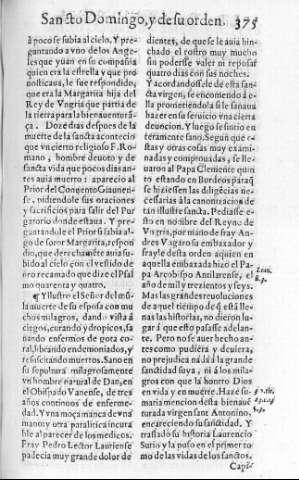 Sancto Domingo, y de su orden. 375
à poco se subia al cielo. Y pre-
guntando a vno de los Ange-
les que yuan en su compañia
quien era la estrella y que pro
nosticaua, le fue respondido,
que era la Margarita hija del
Rey de Vngria que partia de
la tierra para la bienauenturã
ça. Doze dias despues de la
muerte de la sancta acontecio
que vn cierto religioso F. Ro-
mano, hombre deuoto y de
sancta vida que pocos dias an-
tes auia muerto aparecio al
Prior del Conuento
se, pidiendole sus oraciones
y sacrificios para salir del Pur
gatorio donde estaua. Y pre-
guntandole el Prior si sabia al-
go de soror Margarita, respon
dio, que derechamente auia su-
bido al cielo con el vestido de
oro recamado que dize el Psal
mo quarenta y quatro.
¶ Yllustro el Señor del mũ-
la muerte de su esposa con mu
chos milagros, dando vista à
ciegos, curando y dropicos, sa
nando enfermos de gota co-
ral, librando endemoniados, y
resuscitando muertos. Sano en
su sepultura milagrosamente
vn hombre natural de Dan, en
el Obispado Vanense, de tres
años continos de enferme-
dad. Y vna moça manca de vna
mano y otra paralitica incura
ble al parecer de los medicos.
Fray Pedro Lector Lauriense
padecia muy grande dolor de
dientes, de que se le auia hin-
chado el rostro muy mucho
sin poderse valer ni reposar
quatro dias con sus noches.
Y acordandose de esta san-
cta Virgen, se encomendo à e-
lla prometiendola si le sanaua
hazer en su seruicio vna cierta
deuocion. Y luego se sintio en
teramente sano. Segun que es-
tas y otras cosas muy exami-
nadas y comprouadas, se lle-
uaron al Papa Clemente quin
to estando en Bordeos paraq̃
se hiziessen las diligẽcias ne-
cessarias à la canonizacion de
tan illustre sancta. Pediase es-
to en nombre del Reyno de
Vngria, por mano de fray An-
dres Vngaro su embaxador y
frayle desta orden à quien en
aquella embaxada hizo el Pa-
pa Arçobispo Antilarense, el
año de mil y trezientos y seys.
Mas las grandes reuoluciones
de a quel tiempo de q̃ està lle-
nas las historias, no dieron lu-
gar à que esto passasse adelan-
te. Pero no se auer hecho an-
tes como pudiera y deuiera,
no prejudica nada à la grande
sanctidad suya, ni à los mila-
gros con que la honrro Dios
en vida y en muerte. Haze su-
maria mencion desta bienauẽ
turada virgen sant Antonino,
encareciendo su sanctidad. Y
trasladò su historia Laurencio
Surio y la puso en el primer to
mo de las vidas de los sanctos.
Capi-